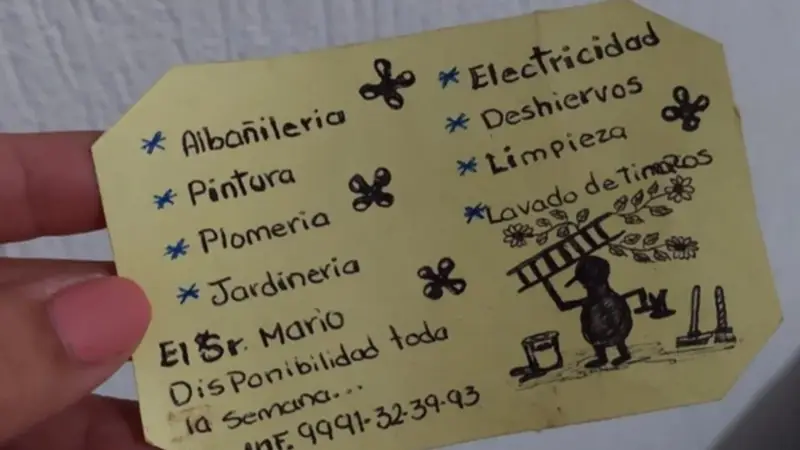 * Albañileria
* Pintura
* Plomeria
* Jardineria
* Electricidad
* Deshiervos
* Limpieza
* Lavado de Tinacos
El Sr. Mario
Disponibilidad toda
la semana...
INF. 9991-32-39-93